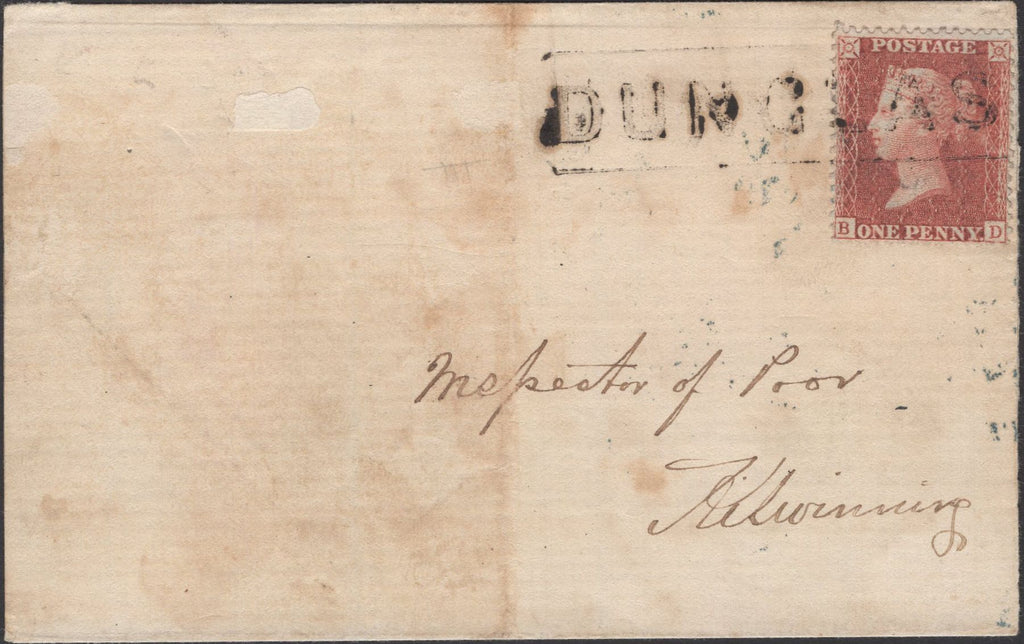 DUNGLAS
POSTAGE
B ONE PENNY. D
Inspector of Poor
Kilwinning